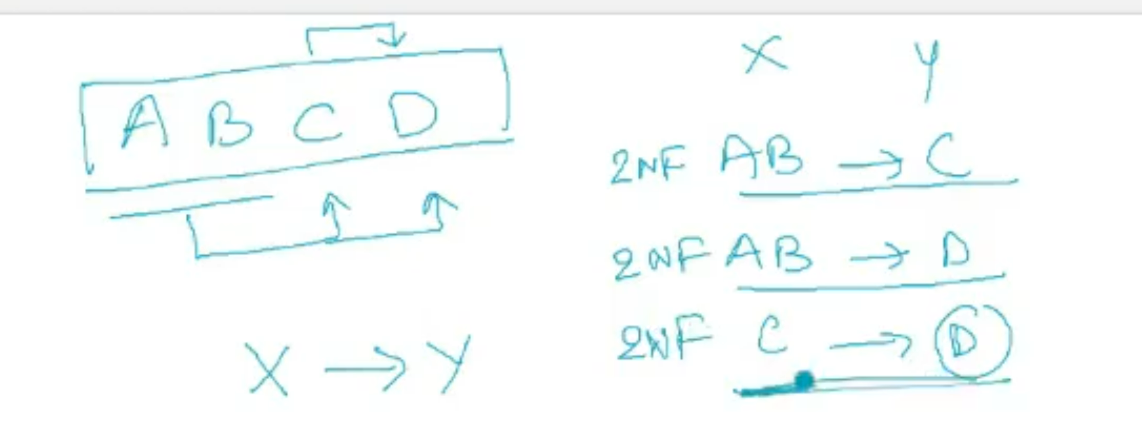 A B C D
X → Y
X Y
2NF AB → C
2NF AB → D
2NF C → D